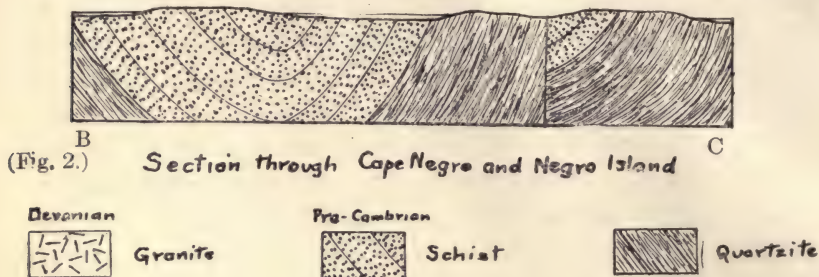 B C
(Fig. 2.) Section through Cape Negro and Negro Island
Devonian Pre-Cambrian
Granite Schist Quartzite